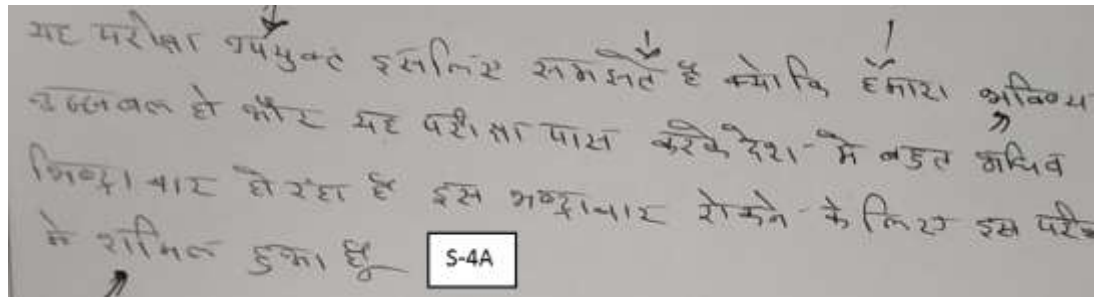 यह परीक्षा उपयुक्त इसलिए समझते है क्योकि हमारा भविष्य
उज्जवल हो और यह परीक्षा पास करके देश मे बहुत अधिक
भिष्टाचार हो रहा है इस भष्टाचार रोकने के लिए इस परीक्ष
मे शामिल हुआ हूँ
S-4A